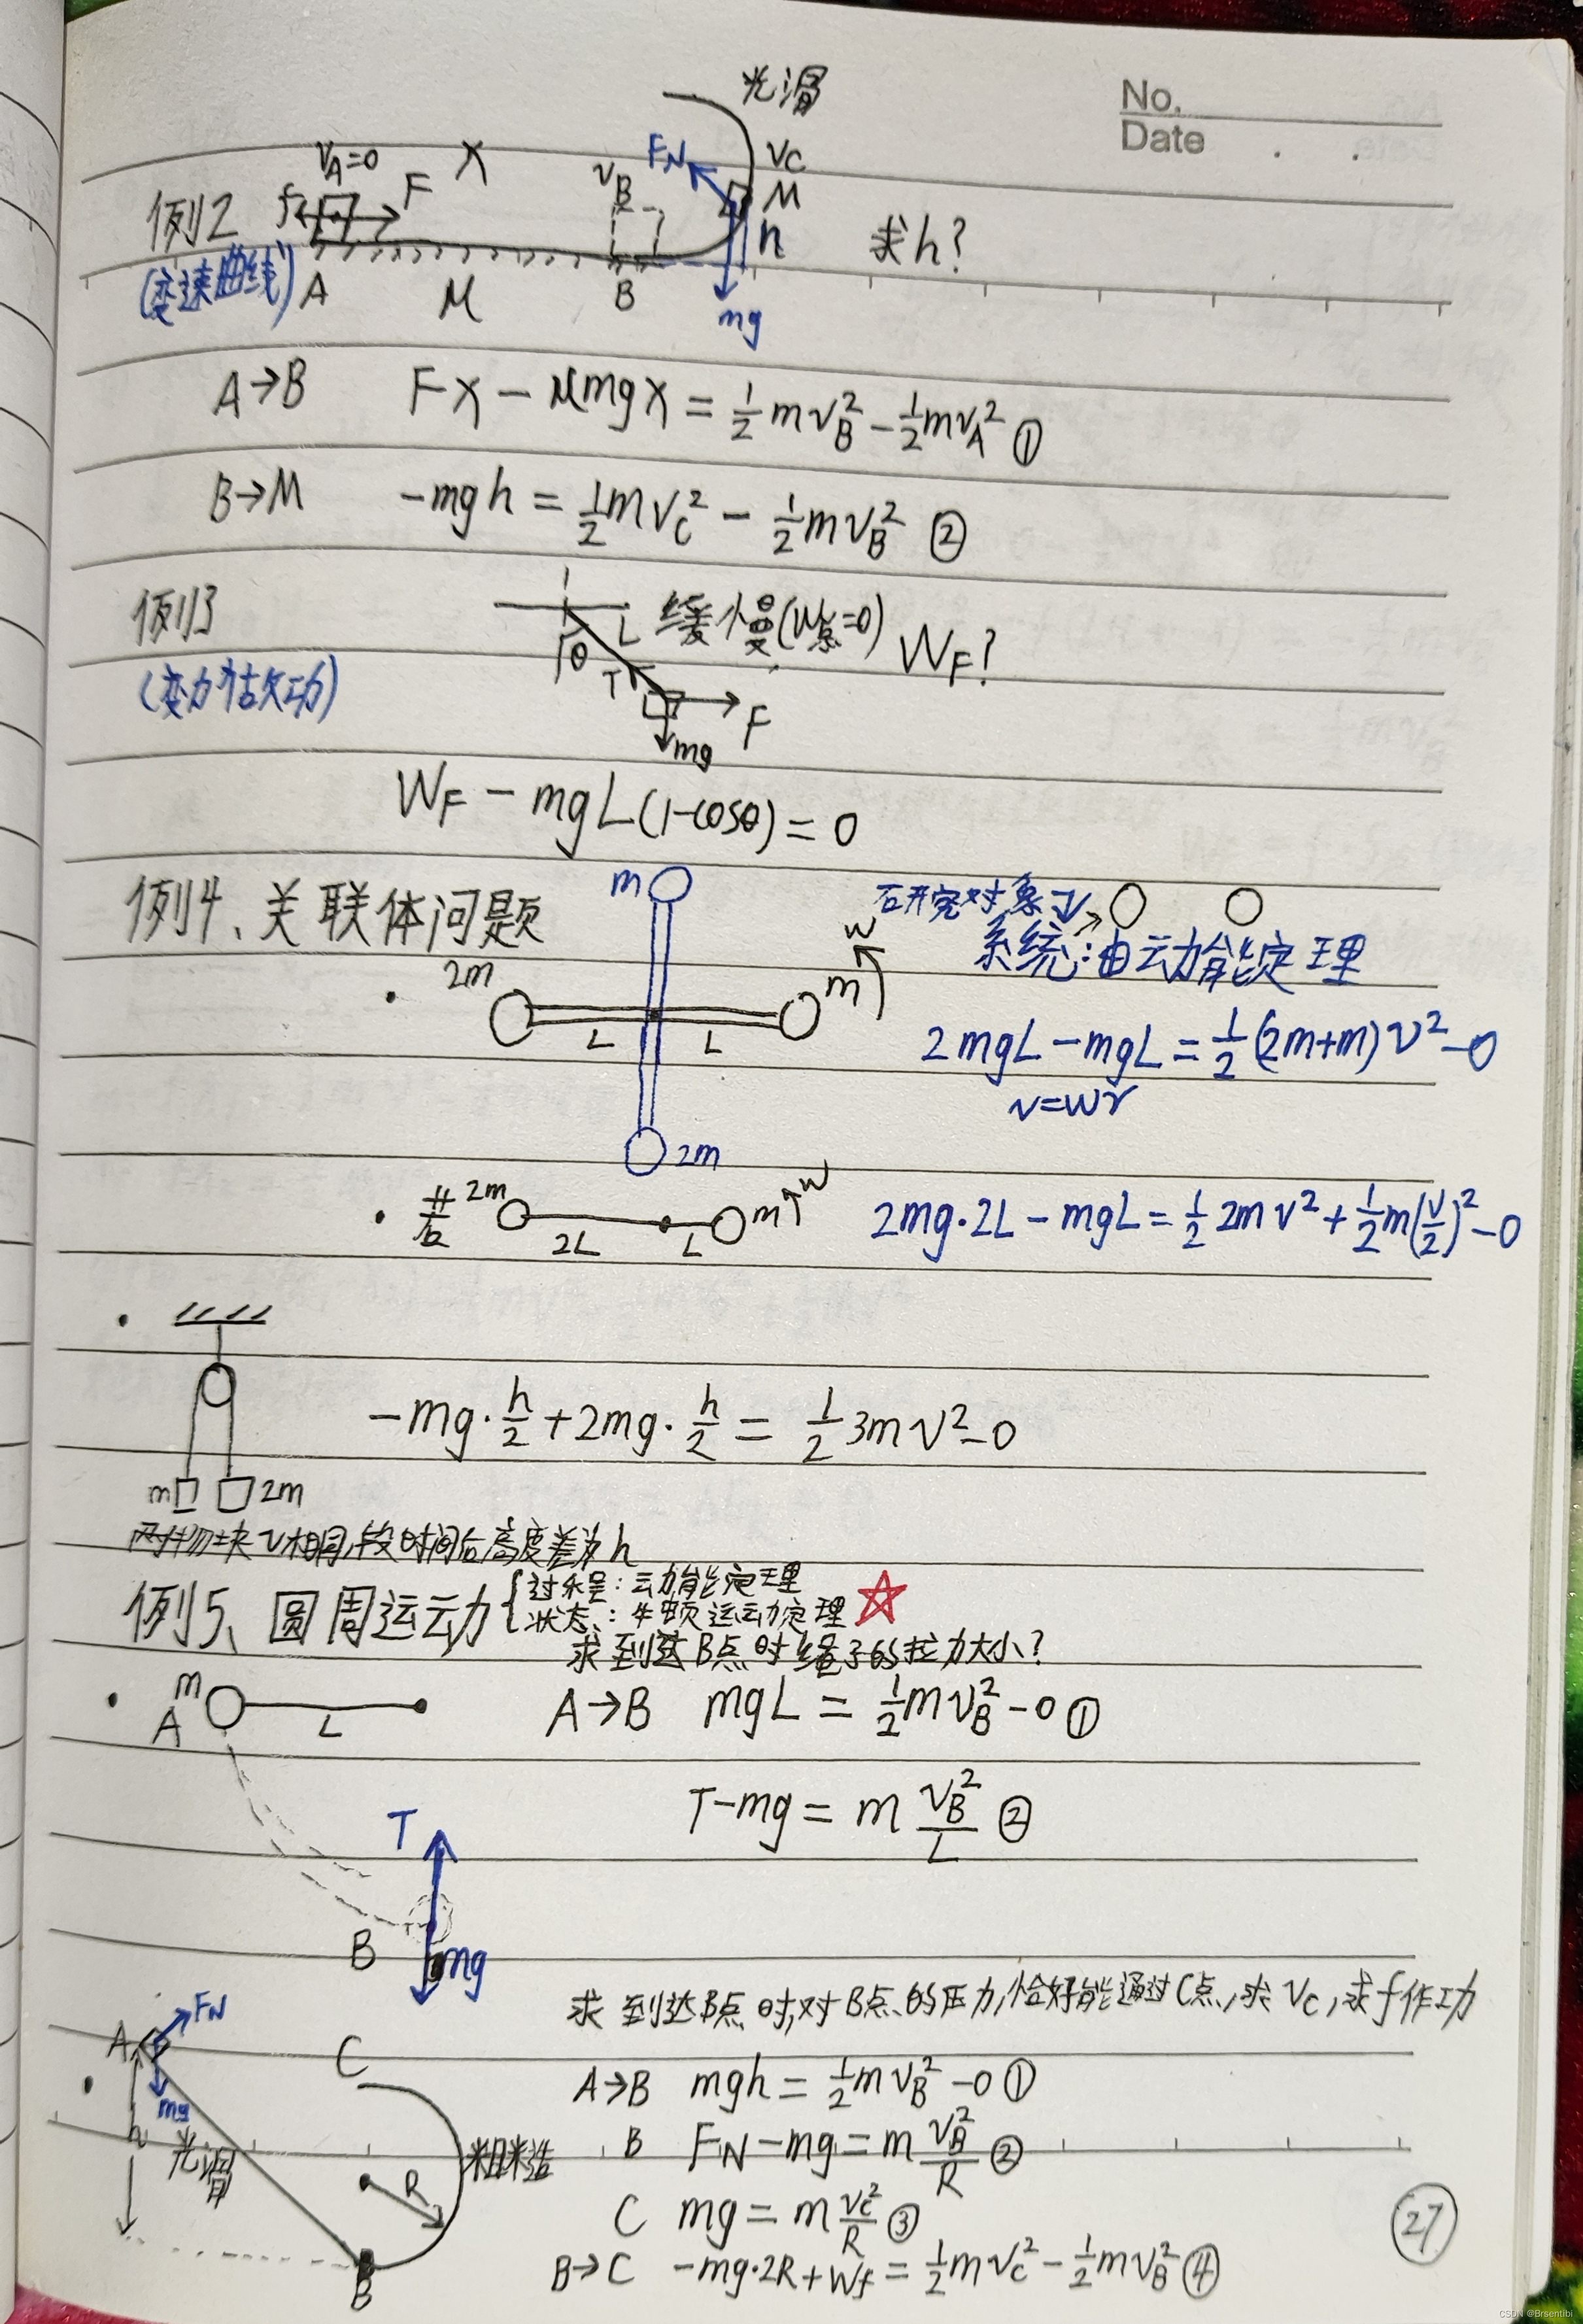 No.
Date
光滑
vA=0 X vB FN vC
例2 f F M h 求h?
(变速曲线) A μ B mg
A→B Fx-μmgx=½mvB²-½mvA² ①
B→M -mgh=½mvC²-½mvB² ②
例3 L 缓慢(v=0) WF?
(变力做功) θ T F
mg
WF-mgL(1-cosθ)=0
例4、关联体问题 m 研究对象
系统:由动能定理
2m m w
L L 2mgL-mgL=½(2m+m)v²-0
v=wr
2m
若 2m m w 2mg·2L-mgL=½2mv²+½m(v/2)²-0
2L L
-mg·h/2+2mg·h/2=½3mv²-0
m 2m
两物块v相同,段时间后高度差为h
例5、圆周运动{过程:动能定理
状态:牛顿运动定理 ☆
求到达B点时绳子的拉力大小?
m A L A→B mgL=½mvB²-0 ①
T-mg=m vB²/L ②
T
B mg
求到达B点时,对B点的压力,恰好能通过C点,求vC,求f作功
A FN C
mg A→B mgh=½mvB²-0 ①
h 光滑 R 粗糙 B FN-mg=m vB²/R ②
C mg=m vC²/R ③
B B→C -mg·2R+Wf=½mvC²-½mvB² ④
27
CSDN @Brsentibi